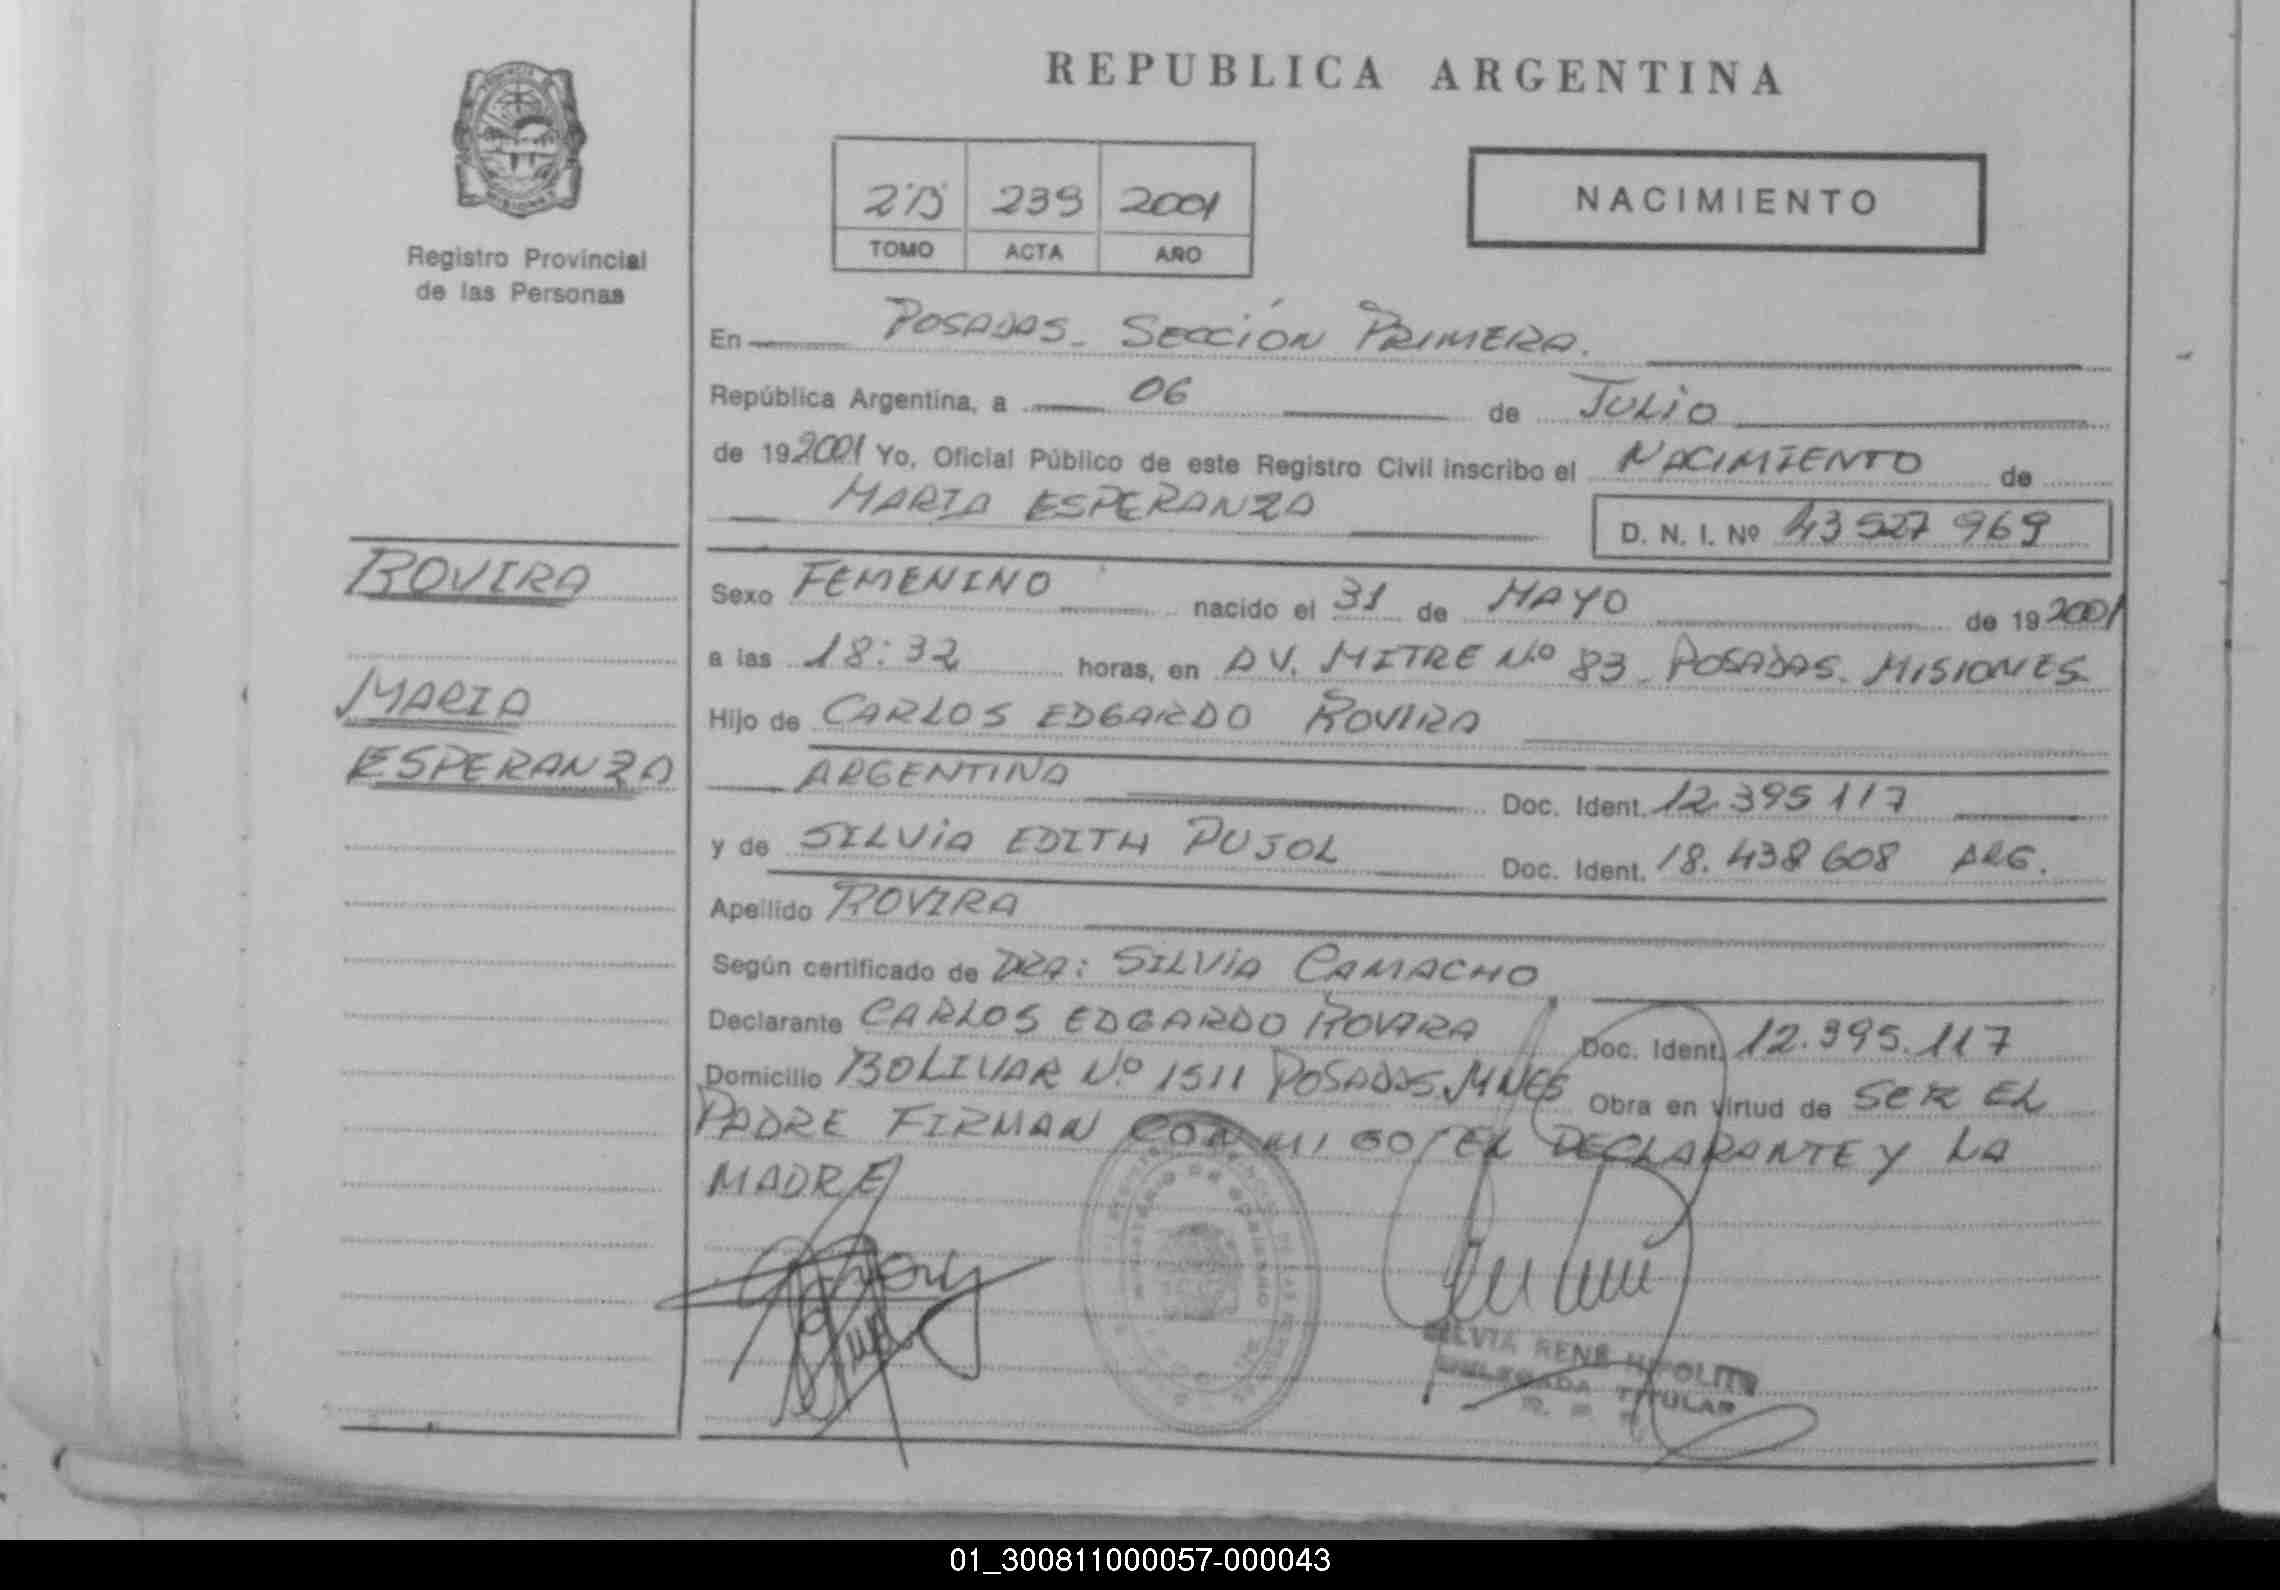 REPUBLICA ARGENTINA
Registro Provincial
de las Personas
239 2001
TOMO ACTA AÑO
NACIMIENTO
En POSADAS. SECCIÓN PRIMERA.
República Argentina, a 06 de JULIO
de 192001 Yo, Oficial Público de este Registro Civil inscribo el NACIMIENTO de
MARIA ESPERANZA
D. N. I. Nº 43 527 969
ROVIRA
MARIA
ESPERANZA
Sexo FEMENINO nacido el 31 de MAYO de 192001
a las 18:32 horas, en AV. MITRE Nº 83 POSADAS. MISIONES
Hijo de CARLOS EDGARDO ROVIRA
ARGENTINA Doc. Ident. 12.395 117
y de SILVIA EDITH PUJOL Doc. Ident. 18.438 608 ARG.
Apellido ROVIRA
Según certificado de DRA: SILVIA CAMACHO
Declarante CARLOS EDGARDO ROVIRA Doc. Ident. 12.395.117
Domicilio BOLIVAR Nº 1511 POSADAS. MNES Obra en virtud de SER EL
PADRE FIRMAN CONMIGO EL DECLARANTE Y LA
MADRE
SILVIA RENE HIPOLITO
DELEGADA TITULAR
01_300811000057-000043